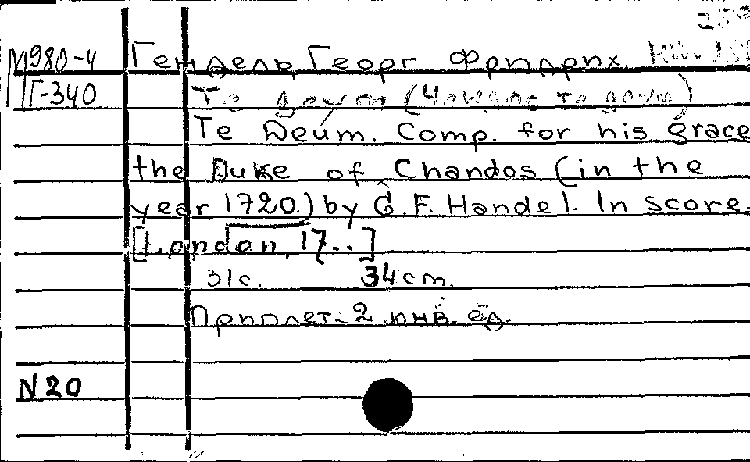 М980-4 Гендель, Георг Фридрих
Г-340 Те деум (
Te Deum. Comp. for his grace
the Duke of Chandos (in the
year 1720) by G. F. Handel. In score.
[London, 17..]
31с. 34cm.
Приплет. 2 инв. ед.
N20